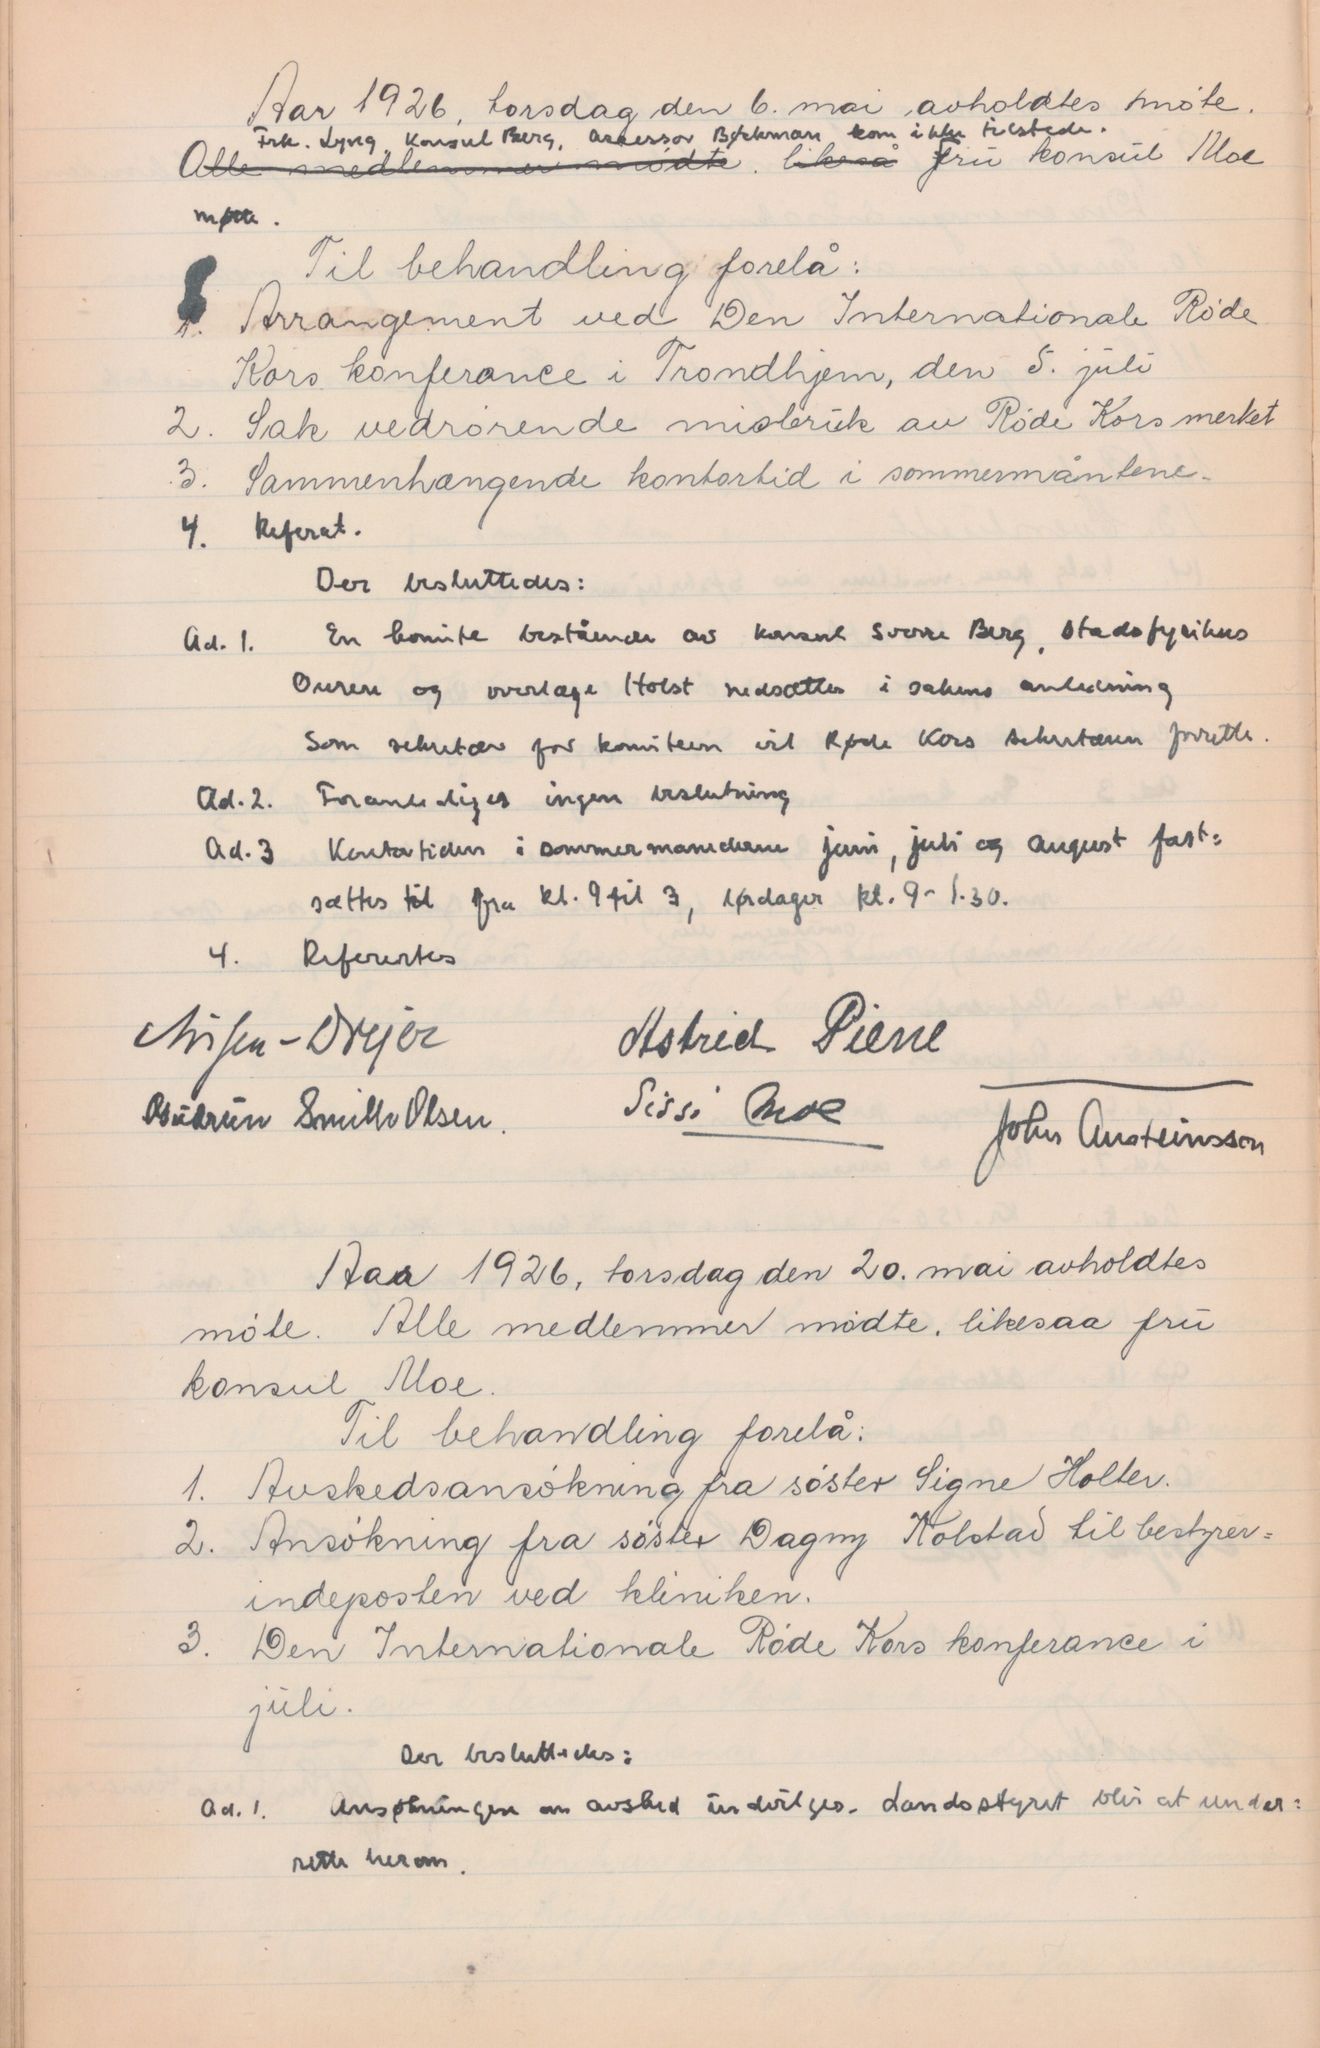 Aar 1926, torsdag den 6. mai avholdtes møte.
Frk. Lyng, Konsul Berg, assessor Bøckman kom ikke tilstede.
Alle medlemmer mødte. likeså Fru konsul Moe
møtte.
Til behandling forelå:
1. Arrangement ved Den Internationale Røde
Kors konferance i Trondhjem, den 5. juli
2. Sak vedrørende misbruk av Røde Kors merket
3. Sammenhængende kontortid i sommermåntene.
4. Referat.
Der besluttedes:
Ad. 1. En komite bestående av konsul Sverre Berg, stadsfysikus
Ouren og overlæge Holst nedsættes i sakens anledning
Som sekretær for komiteen vil Røde Kors sekretæren forrette.
Ad. 2. Foranlediges ingen beslutning
Ad. 3 Kontortiden i sommermanederne juni, juli og august fast=
sættes til fra kl. 9 til 3, lørdager kl. 9 - 1.30.
4. Refertes
Nissen-Drejer Astrid Piene
Gudrun Smith Olsen. Sissi Moe John Austeinsson
Aar 1926, torsdag den 20. mai avholdtes
møte. Alle medlemmer mødte, likesaa fru
konsul Moe.
Til behandling forelå:
1. Avskedsansøkning fra søster Signe Holter.
2. Ansøkning fra søster Dagny Kolstad til bestyrer=
indeposten ved kliniken.
3. Den Internationale Røde Kors konferance i
juli.
Der besluttedes:
Ad. 1. Ansøkningen om avsked indvilges. Landsstyret blir at under=
rette herom.